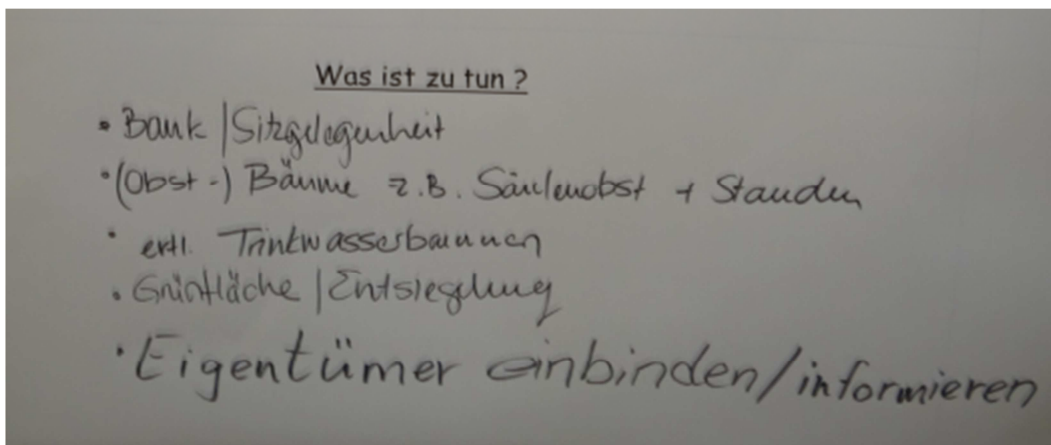 Was ist zu tun ?
• Bank | Sitzgelegenheit
• (Obst-) Bäume z.B. Säulenobst + Stauden
• evtl. Trinkwasserbrunnen
• Grünfläche | Entsiegelung
• Eigentümer einbinden/informieren